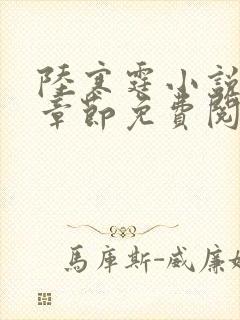 陸寒霆小說
章節免費閱
馬庫斯-威廉姆